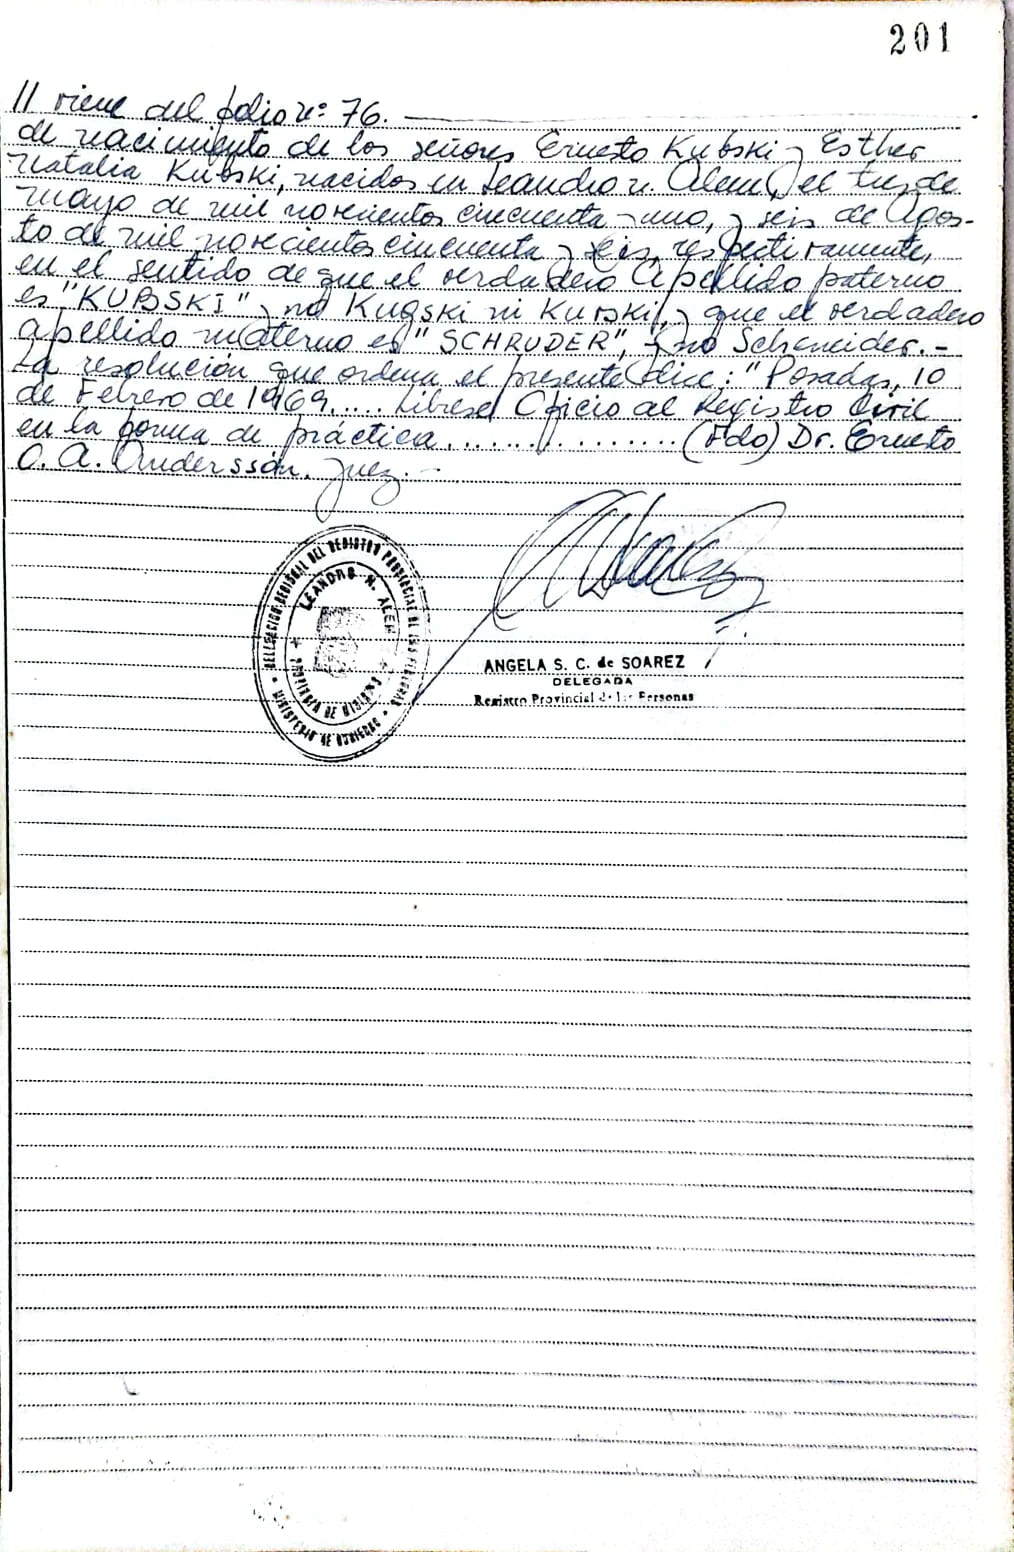 201
// viene del folio nº 76.
de nacimiento de los señores Ernesto Kubski y Esther
Natalia Kubski, nacidos en Leandro N. Alem, el tres de
mayo de mil novecientos cincuenta y uno, y seis de Agos-
to de mil novecientos cincuenta y seis, respectivamente,
en el sentido de que el verdadero apellido paterno
es "KUBSKI" y no Kugski ni Kurski, y que el verdadero
apellido materno es "SCHRUDER", y no Schneider.-
La resolución que ordena el presente dice: "Posadas, 10
de Febrero de 1969..... Líbrese Oficio al Registro Civil
en la forma de práctica................. (Fdo) Dr. Ernesto
O. A. Anderssón. Juez.-
DELEGACION REGIONAL DEL REGISTRO PROVINCIAL DE LAS PERSONAS
LEANDRO N. ALEM
PROVINCIA DE MISIONES
MINISTERIO DE GOBIERNO
ANGELA S. C. de SOAREZ
DELEGADA
Registro Provincial de las Personas